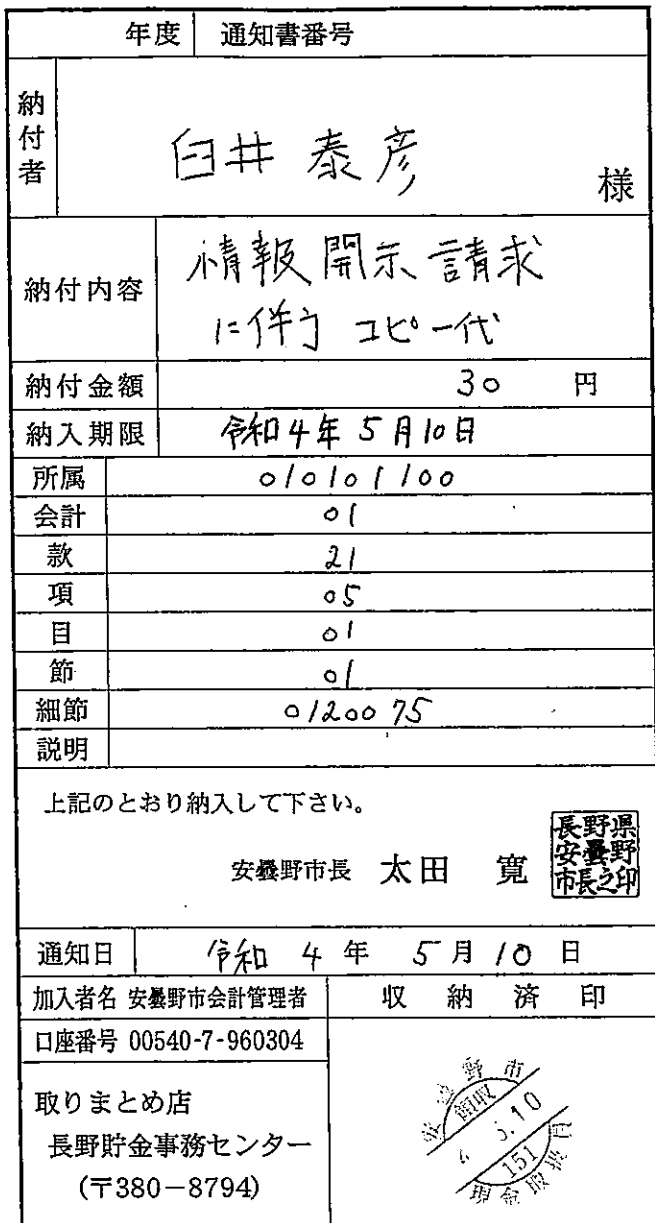 年度 通知書番号
納付者 臼井泰彦 様
納付内容 情報開示請求
に伴う コピー代
納付金額 30 円
納入期限 令和4年5月10日
所属 010101100
会計 01
款 21
項 05
目 01
節 01
細節 0120075
説明
上記のとおり納入して下さい。
安曇野市長 太田 寛
長野県
安曇野
市長之印
通知日 令和 4 年 5 月 10 日
加入者名 安曇野市会計管理者 収納済印
口座番号 00540-7-960304
取りまとめ店
長野貯金事務センター
(〒380-8794)
安曇野市
領収
5.10
151
現金取扱員